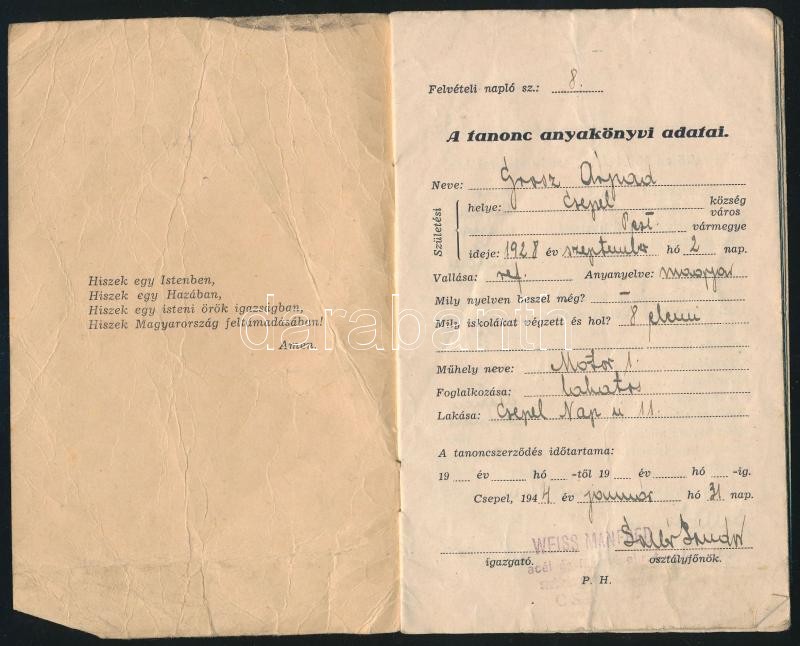 Hiszek egy Istenben,
Hiszek egy Hazában,
Hiszek egy isteni örök igazságban,
Hiszek Magyarország feltámadásában!
Amen.
Felvételi napló sz.: 8.
A tanonc anyakönyvi adatai.
Neve: Grosz Árpád
Születési
helye: Csepel község
város
Pest. vármegye
ideje: 1928 év szeptember hó 2 nap.
Vallása: ref. Anyanyelve: magyar
Mily nyelven beszél még? –
Mily iskolákat végzett és hol? 8 elemi
Műhely neve: Motor 1.
Foglalkozása: lakatos
Lakása: Csepel Nap u 11.
A tanoncszerződés időtartama:
19 év hó -től 19 év hó -ig.
Csepel, 1944 év január hó 31 nap.
WEISS MANFRÉD
acél
igazgató. osztályfőnök.
P. H.
darabanth